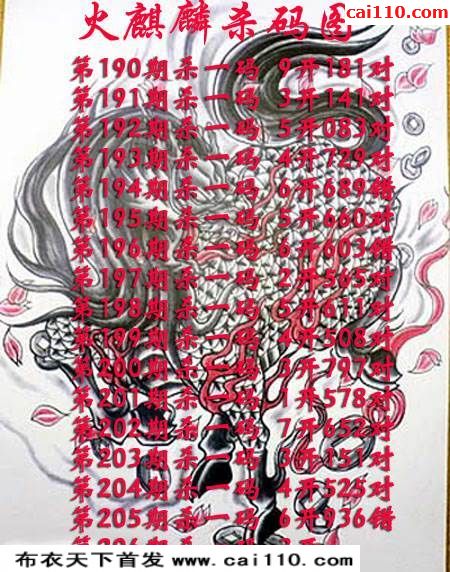 cai110.com
火麒麟杀码图
第190期杀一码 9开181对
第191期杀一码 3开141对
第192期杀一码 5开083对
第193期杀一码 4开729对
第194期杀一码 6开689错
第195期杀一码 5开660对
第196期杀一码 6开603错
第197期杀一码 2开565对
第198期杀一码 5开611对
第199期杀一码 4开508对
第200期杀一码 3开797对
第201期杀一码 1开578对
第202期杀一码 7开652对
第203期杀一码 3开151对
第204期杀一码 4开525对
第205期杀一码 6开936错
布衣天下首发 www.cai110.com